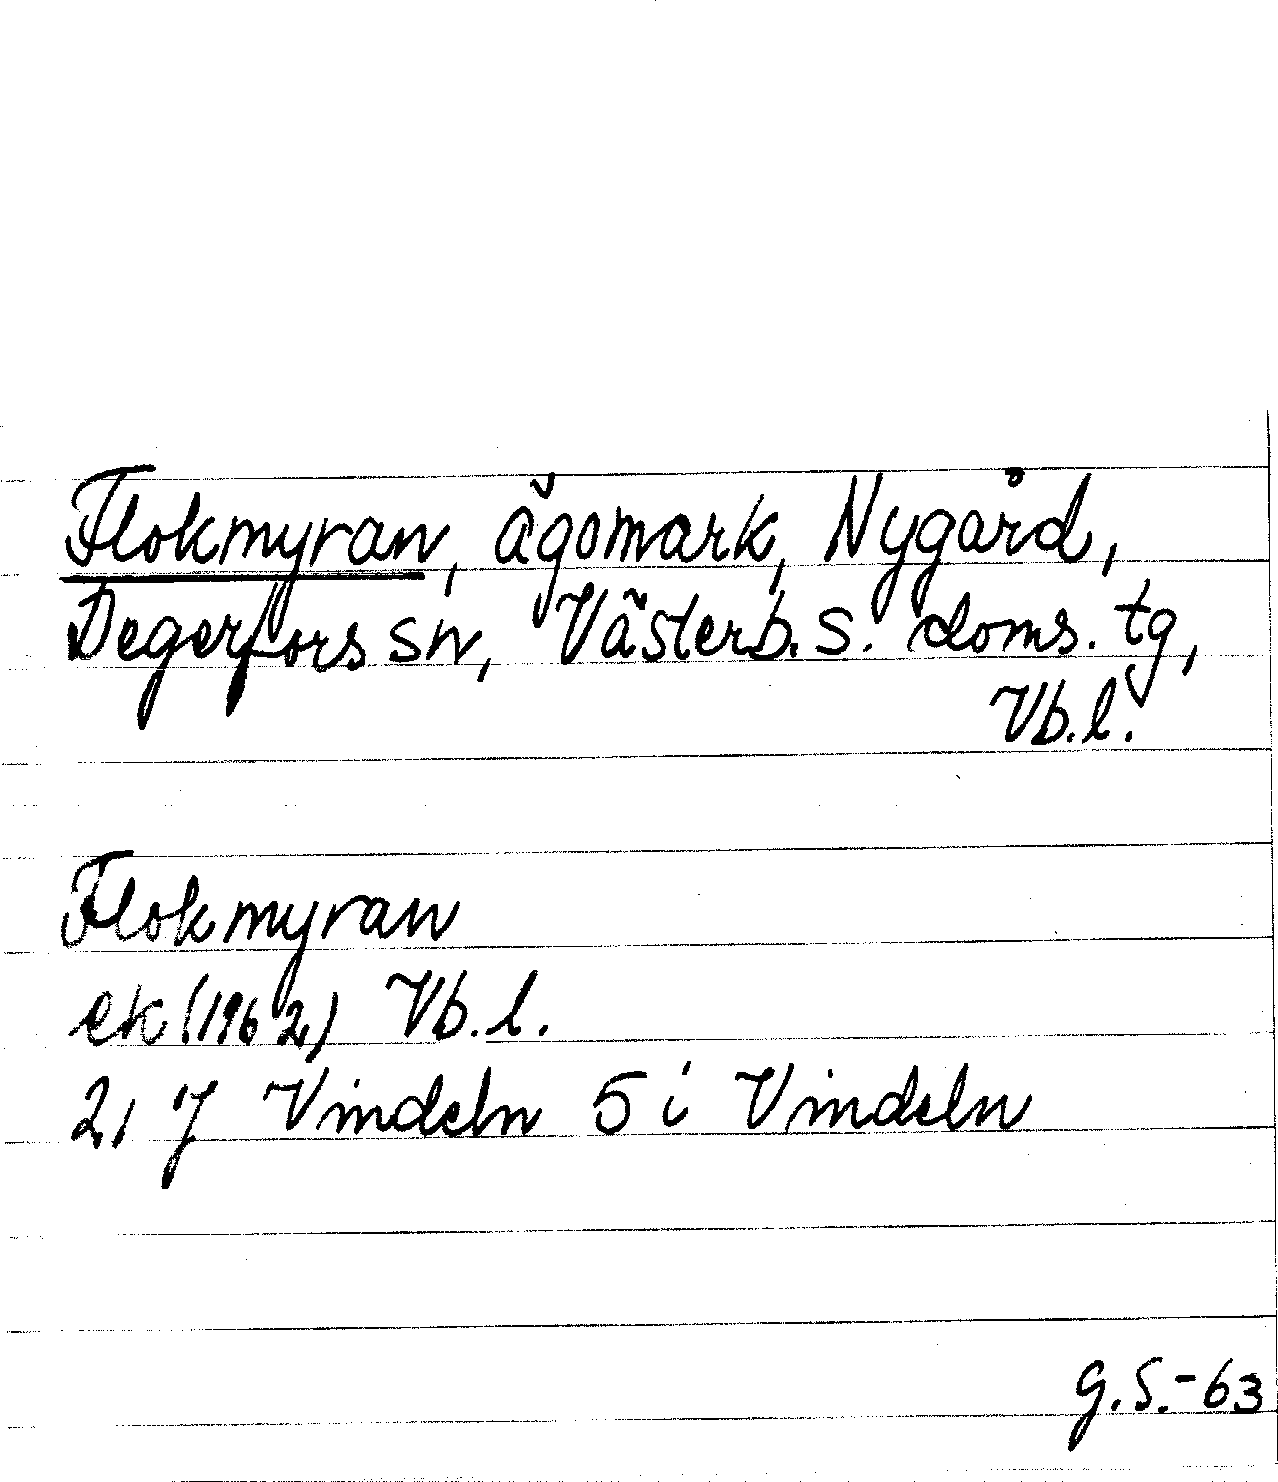 Flokmyran, ägomark, Nygård,
Degerfors sn, Västerb. s. doms. tg,
Vb.l.
Flokmyran
ek (1962) Vb.l.
21 J Vindeln 5 i Vindeln
G.S.-63